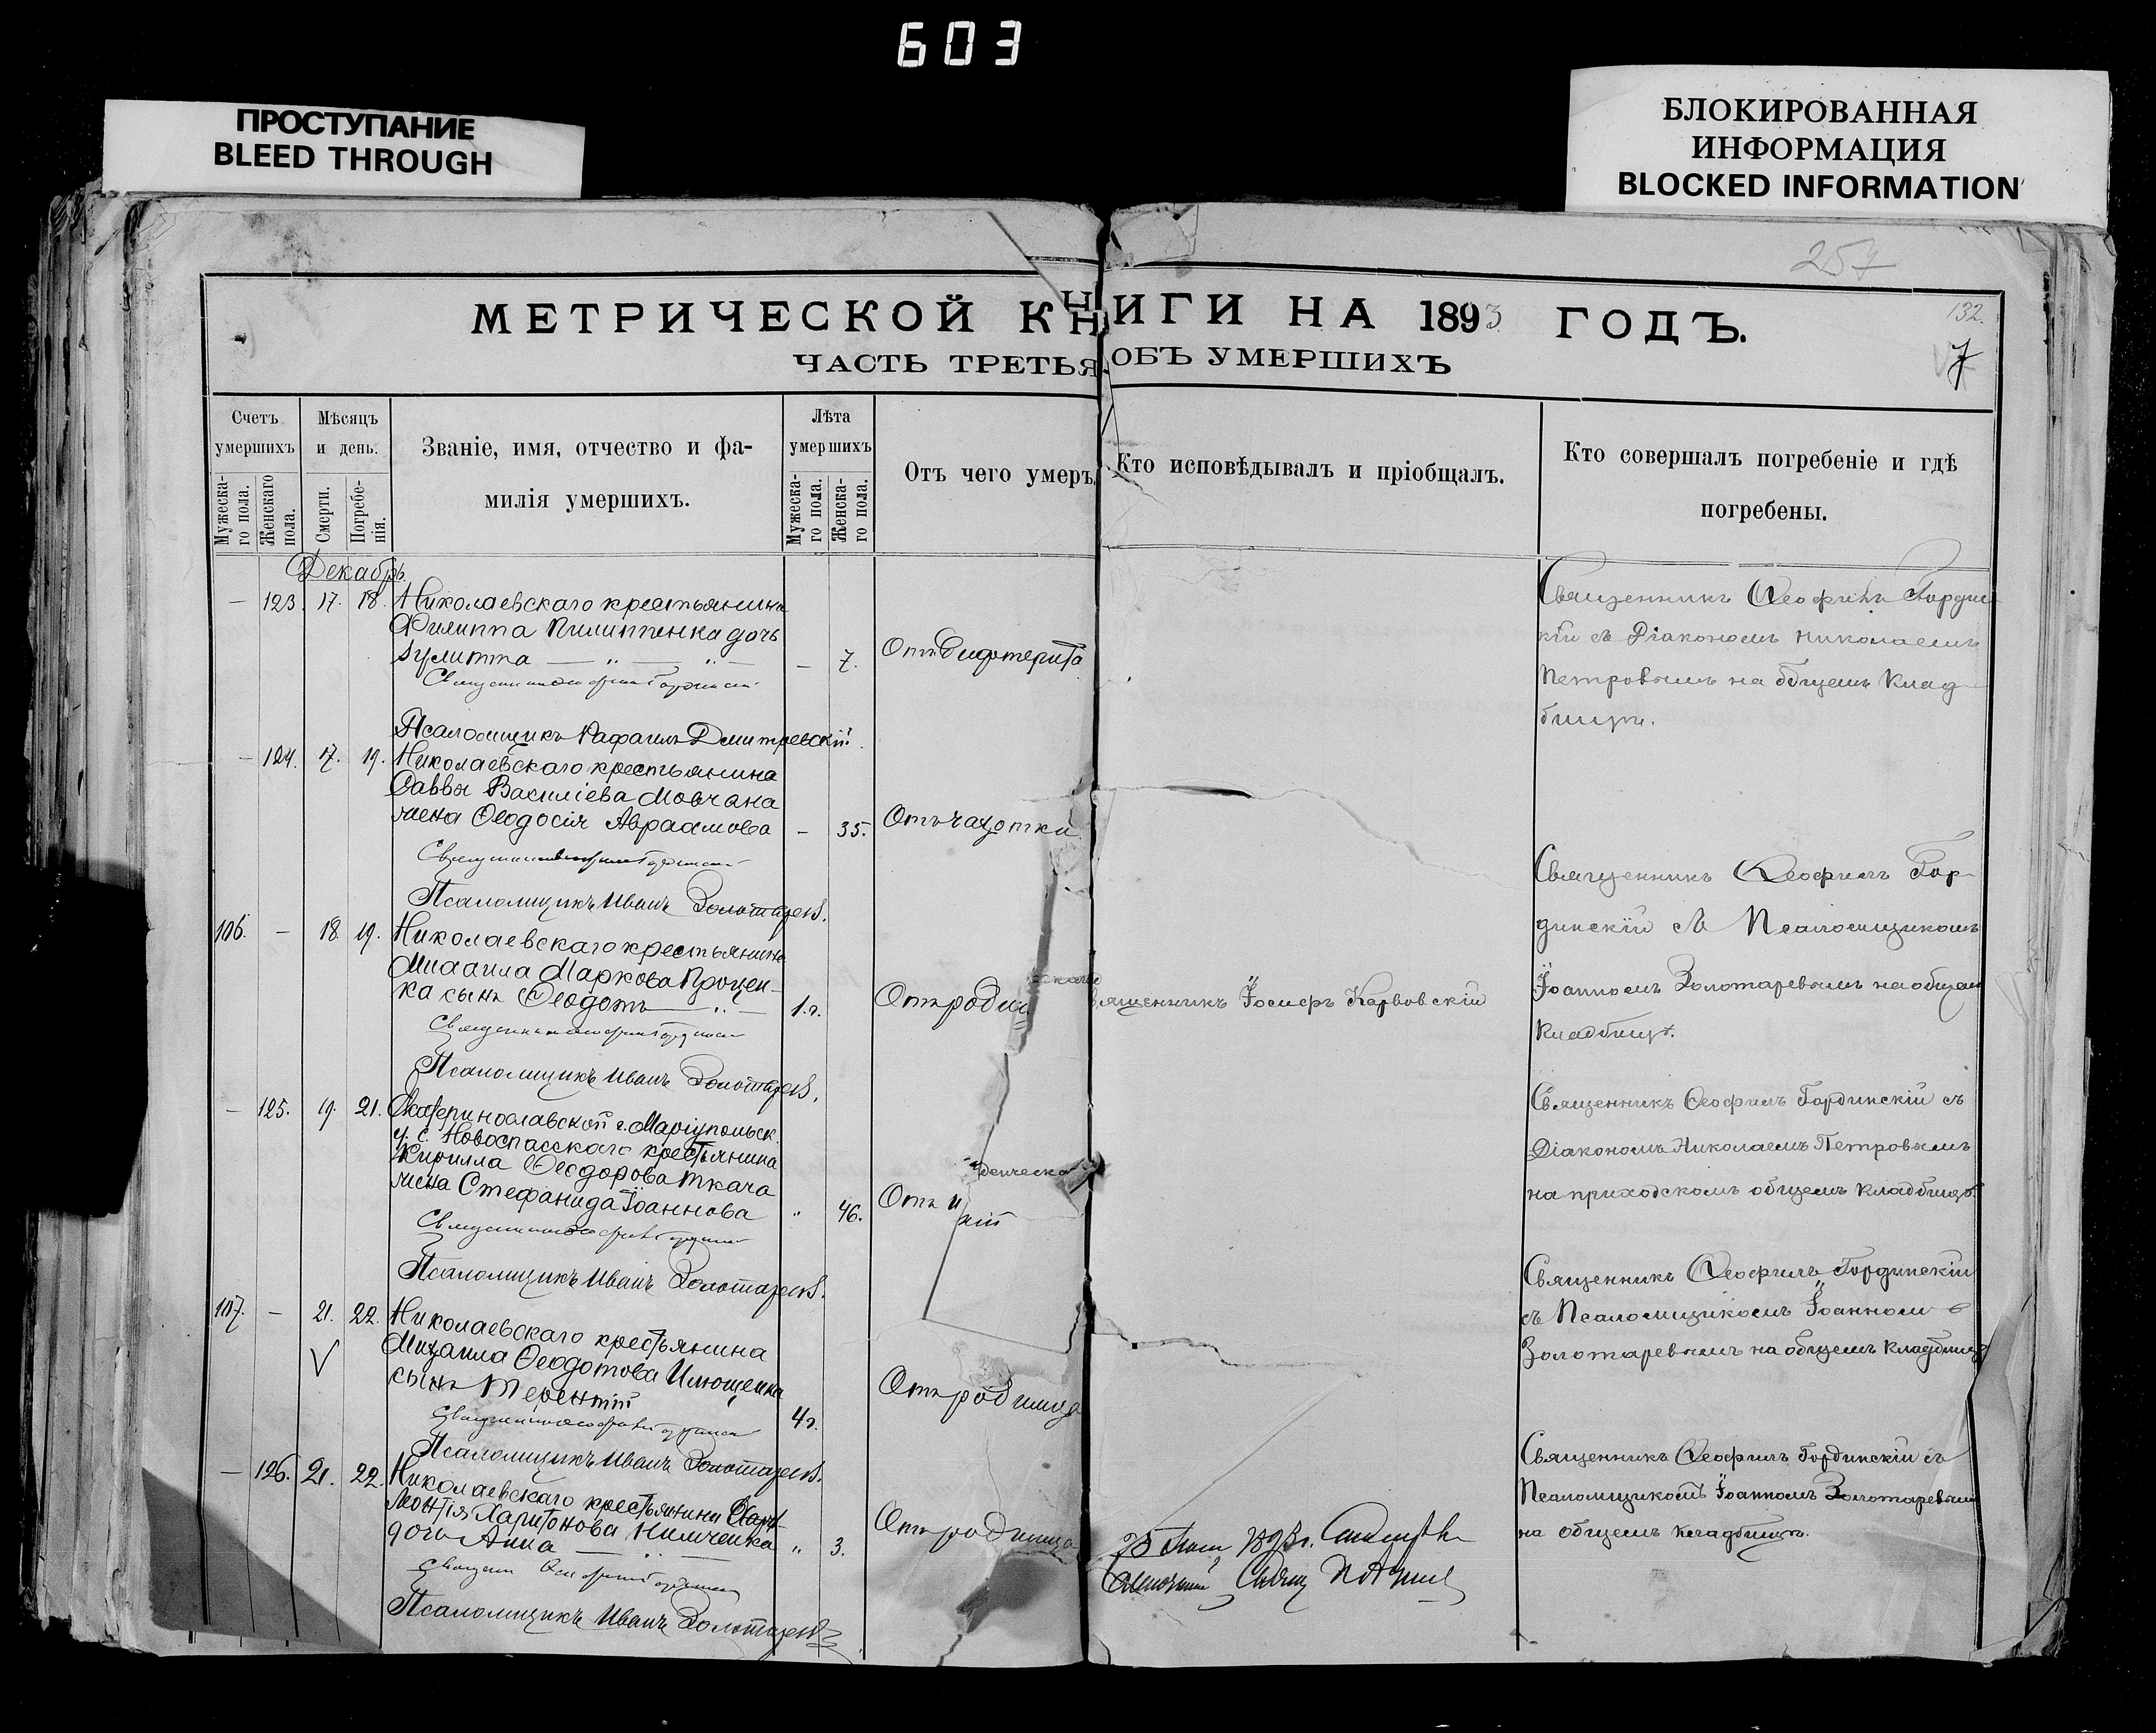 603
ПРОСТУПАНИЕ
BLEED THROUGH
БЛОКИРОВАННАЯ
ИНФОРМАЦИЯ
BLOCKED INFORMATION
257
МЕТРИЧЕСКОЙ КНИГИ НА 1893 ГОДЪ.
132.
ЧАСТЬ ТРЕТЬЯ ОБЪ УМЕРШИХЪ
7
Счетъ умершихъ
Мужеска-го пола.
Женскаго пола.
Мѣсяцъ и день.
Смерти.
Погребе-нія.
Званіе, имя, отчество и фа-
милія умершихъ.
Лѣта умершихъ
Мужеска-го пола.
Женска-го пола.
Отъ чего умеръ
Кто исповѣдывалъ и пріобщалъ.
Кто совершалъ погребеніе и гдѣ
погребены.
Декабрь
— 123. 17. 18. Николаевскаго крестьянина
Филиппа Пилиппенка дочь
Іулитта — „ — „ — — 7. Отъ дифтерита
Священникъ Ѳеофилъ Гординскій
Псаломщикъ Рафаилъ Дмитревскій.
Священникъ Ѳеофилъ Гординс
кій съ Діакономъ Николаемъ
Петровымъ на общемъ клад
бищѣ.
— 124. 17. 19. Николаевскаго крестьянина
Саввы Василіева Мовчана
жена Ѳеодосія Авраамова — 35. Отъ чахотки
Священникъ Ѳеофилъ Гординскій
Псаломщикъ Иванъ Золотаревъ.
Священникъ Ѳеофилъ Гор-
динскій съ Псаломщикомъ
Іоанномъ Золотаревымъ на общем
кладбищѣ.
106. — 18. 19. Николаевскаго крестьянина
Михаила Маркова Процен-
ка сынъ Ѳеодотъ — „ — 1.г. Отъ родим
Священникъ Ѳеофилъ Гординскій
Псаломщикъ Иванъ Золотаревъ.
ященникъ Іосифъ Карвовскій
Священникъ Ѳеофилъ Гординскій съ
Діакономъ Николаемъ Петровымъ
на приходскомъ общемъ кладбищѣ.
— 125. 19. 21. Екатеринославской г. Маріупольск.
у. с. Новоспасскаго крестьянина
Кирилла Ѳеодорова Ткача
жена Стефанида Іоаннова „ 46. Отъ
Священникъ Ѳеофилъ Гординскій
Псаломщикъ Иванъ Золотаревъ.
Священникъ Ѳеофилъ Гординскій
съ Псаломщикомъ Іоанномъ
Золотаревымъ на общемъ кладбищѣ
107. — 21. 22. Николаевскаго крестьянина
Михаила Ѳеодотова Илющенка
сынъ Терентій 4г. Отъ родимца
Священникъ Ѳеофилъ Гординскій
Псаломщикъ Иванъ Золотаревъ.
Священникъ Ѳеофилъ Гординскій съ
Псаломщикомъ Іоанномъ Золотаревым
на общемъ кладбищѣ.
— 126. 21. 22. Николаевскаго крестьянина
Леонтія Харитонова Нимченка
дочь Анна — „ — „ 3. Отъ родимца
Священ Ѳеофилъ Гординскій
Псаломщикъ Иванъ Золотаревъ